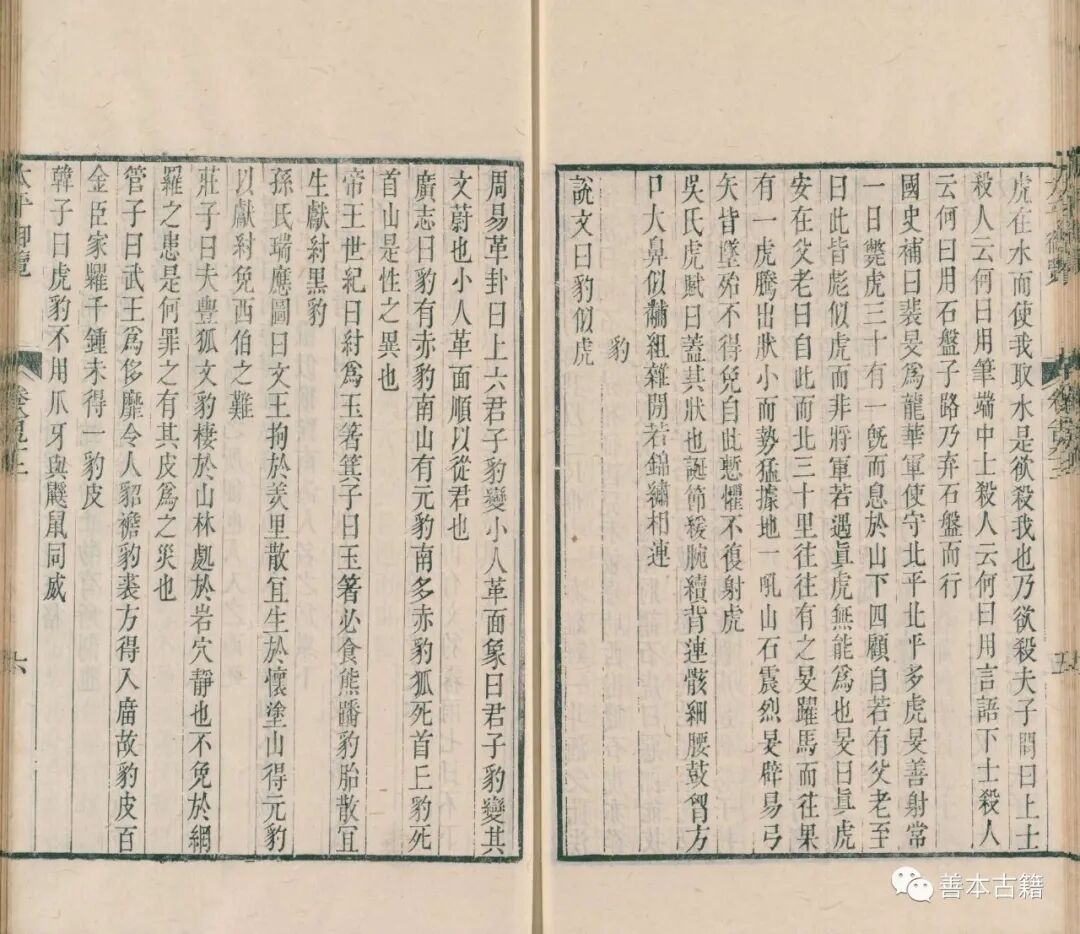 虎在水而使我取水是欲殺我也乃欲殺夫子問曰上士
殺人云何曰用筆端中士殺人云何曰用言語下士殺人
云何曰用石盤子路乃弃石盤而行
國史補曰裴旻爲龍華軍使守北平北平多虎旻善射常
一日斃虎三十有一旣而息於山下四顧自若有父老至
曰此皆彪似虎而非將軍若遇眞虎無能爲也旻曰眞虎
安在父老曰自此而北三十里往往有之旻躍馬而往果
有一虎騰出狀小而勢猛據地一吼山石震烈旻辟易弓
矢皆墜殆不得免自此慙懼不復射虎
吳氏虎賦曰蓋其狀也誕節緩腕續背連骸細腰鼓胷方
口大鼻似黼組雜閒若錦繡相連
豹
說文曰豹似虎
周易革卦曰上六君子豹變小人革面象曰君子豹變其
文蔚也小人革面順以從君也
廣志曰豹有赤豹南山有元豹南多赤豹狐死首丘豹死
首山是性之異也
帝王世紀曰紂爲玉箸箕子曰玉箸必食熊蹯豹胎散宜
生獻紂黑豹
孫氏瑞應圖曰文王拘於羑里散宜生於懷塗山得元豹
以獻紂免西伯之難
莊子曰夫豐狐文豹棲於山林處於岩穴靜也不免於網
羅之患是何罪之有其皮爲之災也
管子曰武王爲侈靡令人貂襜豹裘方得入廣故豹皮百
金臣家糶千鍾未得一豹皮
韓子曰虎豹不用爪牙與鼷鼠同威
太平御覽
六
善本古籍